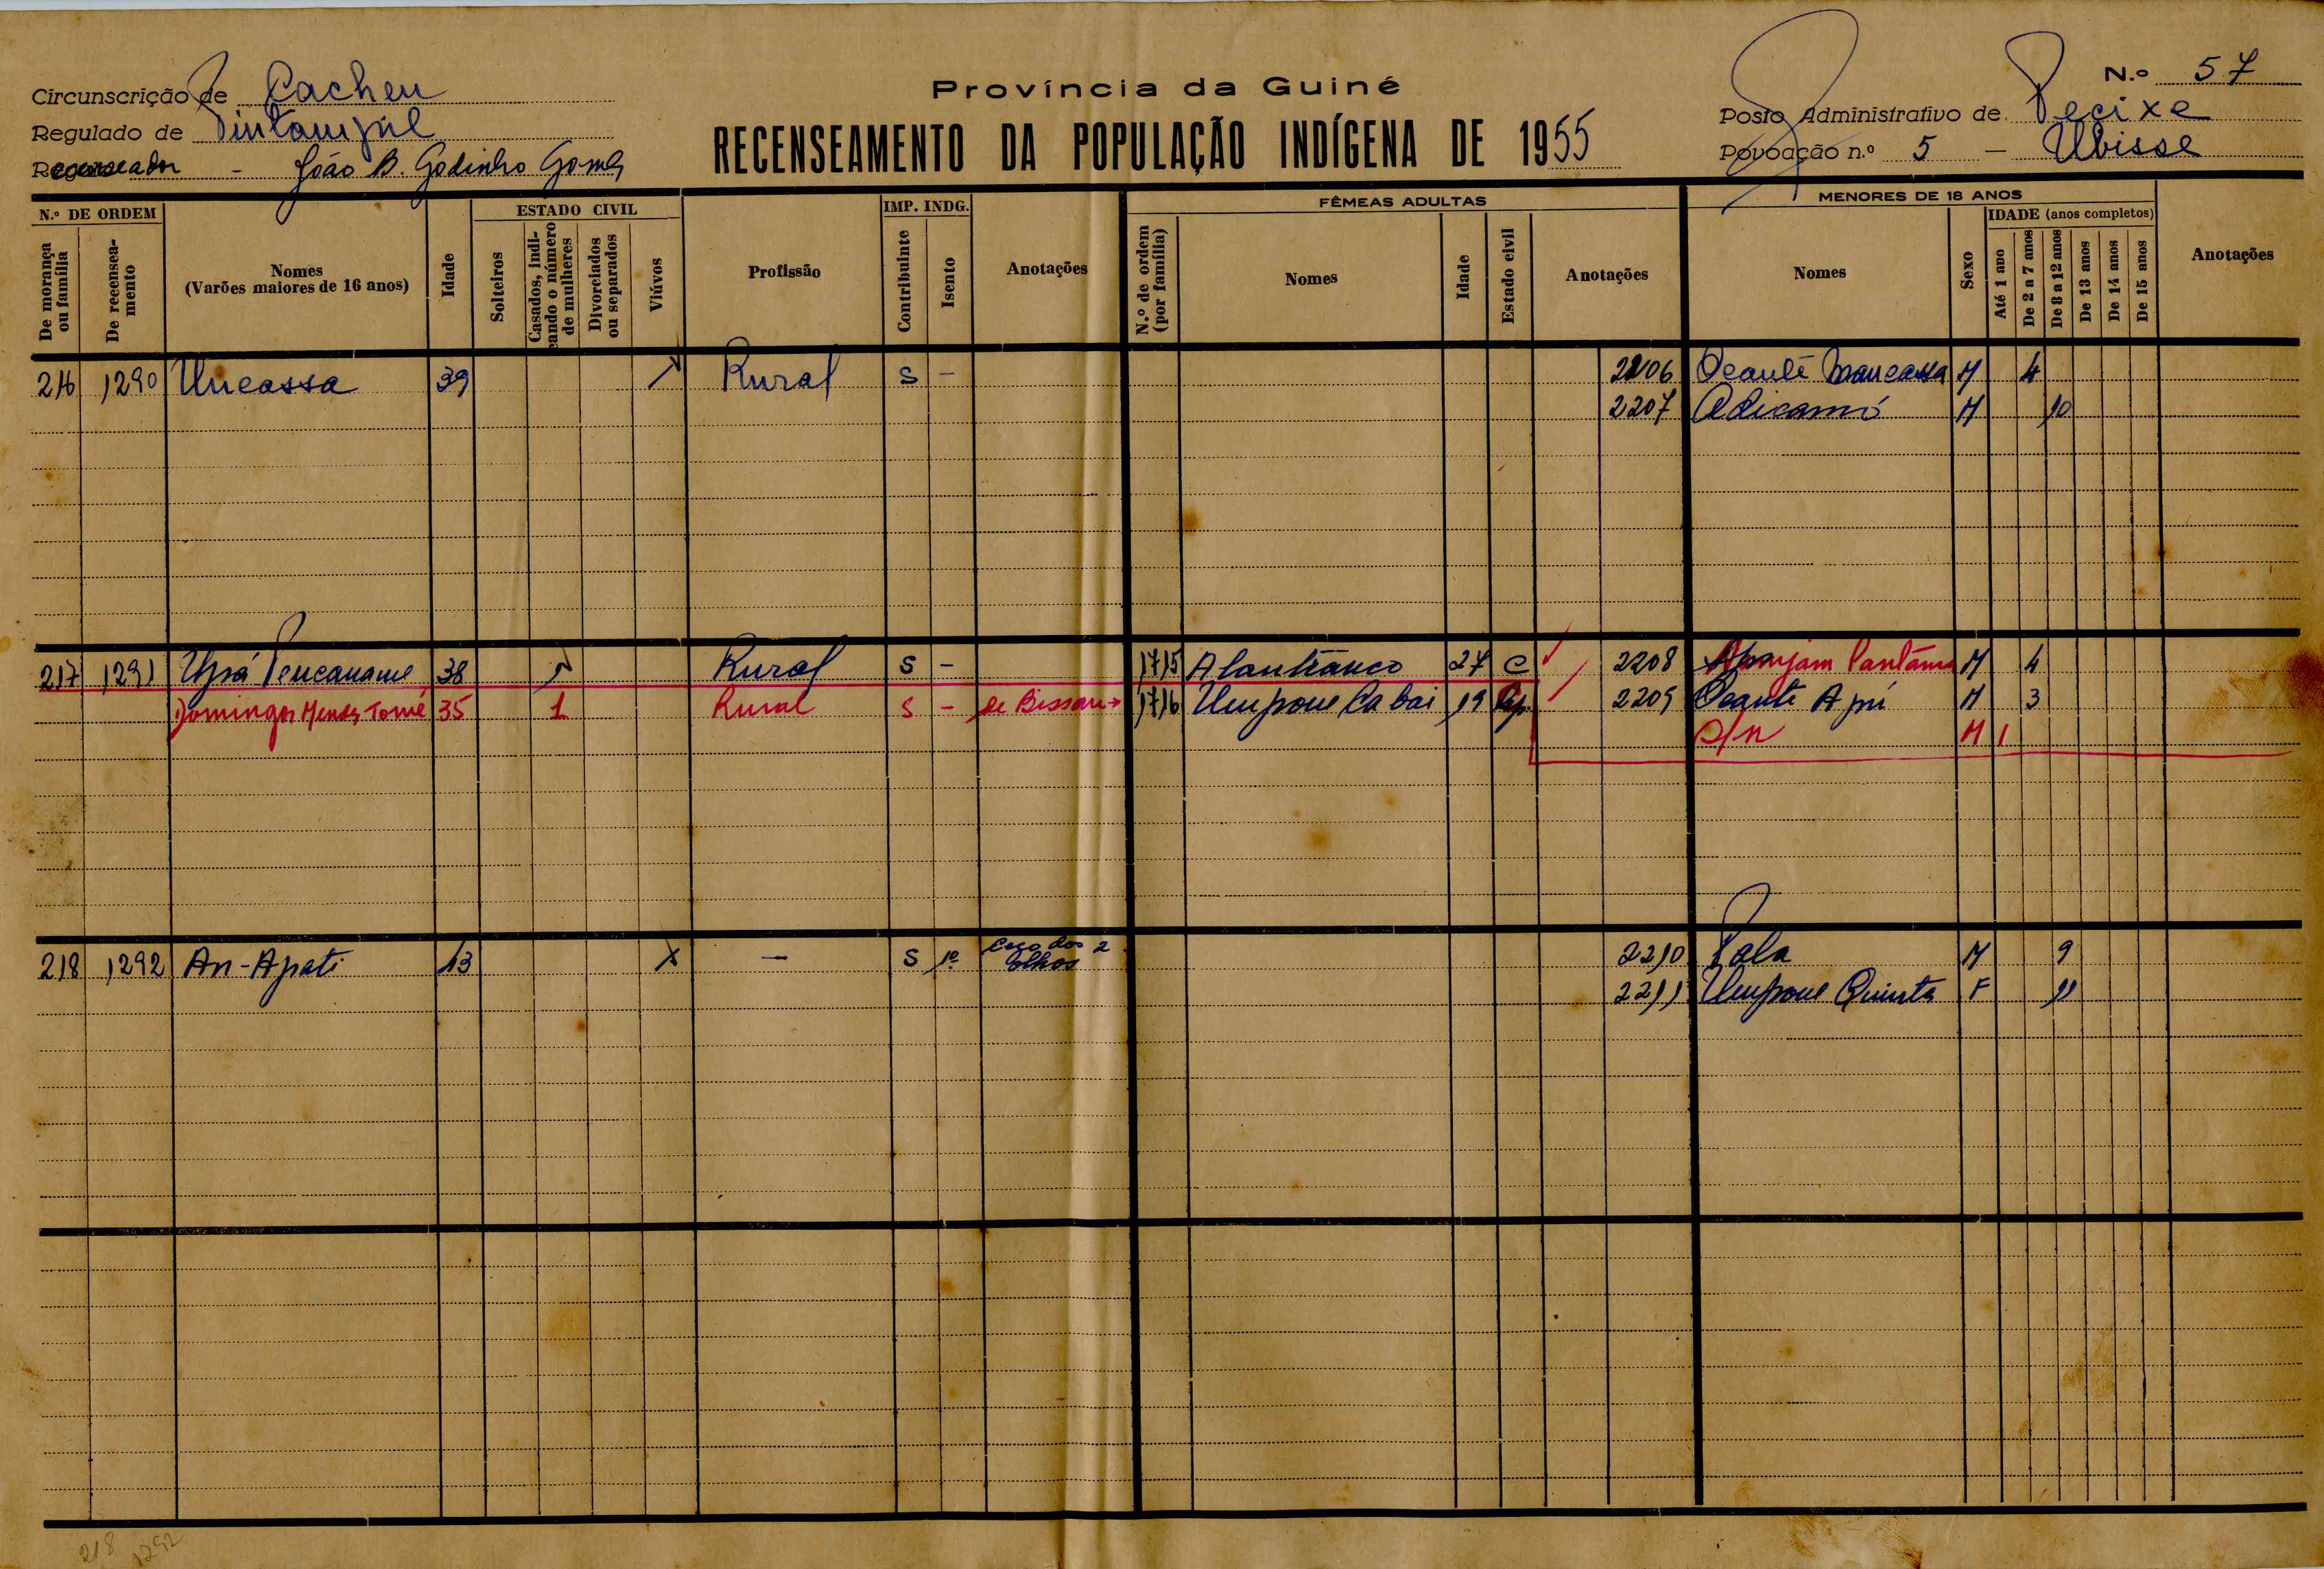 N.º 57
Circunscrição de Cacheu
Província da Guiné
Posto Administrativo de Pecixe
Regulado de Pintampil
RECENSEAMENTO DA POPULAÇÃO INDÍGENA DE 1955
Povoação n.º 5 – Ubisse
Recenseador - João B. Godinho Gomes
N.º DE ORDEM
De morança ou família
De recensea-mento
Nomes
(Varões maiores de 16 anos)
Idade
ESTADO CIVIL
Solteiros
Casados, indi-cando o número de mulheres
Divorciados ou separados
Viúvos
Profissão
IMP. INDG.
Contribuinte
Isento
Anotações
FÊMEAS ADULTAS
N.º de ordem (por família)
Nomes
Idade
Estado civil
Anotações
MENORES DE 18 ANOS
Nomes
Sexo
IDADE (anos completos)
Até 1 ano
De 2 a 7 anos
De 8 a 12 anos
De 13 anos
De 14 anos
De 15 anos
Anotações
216 1290 Uncassa 39 Rural S - 2206 Ocante Mancassa M 4
2207 M 10
217 1291 Upá Pencaname 38 Rural S - 1715 27 C 2208 M 4
Domingos Mendes Tomé 35 1 Rural S - de Bissau 1716 Umpone Cabai 19 2209 Ocante Apú M 3
S/n M 1
218 1292 An-Apati X - S Cego dos 2 olhos 2210 Pala M 9
2211 Umpone Quinta F 11
218 1292